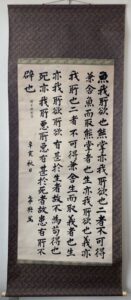 魚我所欲也熊掌亦我所欲也二者不可得
兼舍魚而取熊掌者也生亦我所欲也義亦
我所欲也二者不可得兼舍生而取義者也生
亦我所欲所欲有甚於生者故不為苟得也
死亦我所惡所惡有甚於死者故患有所不
辟也